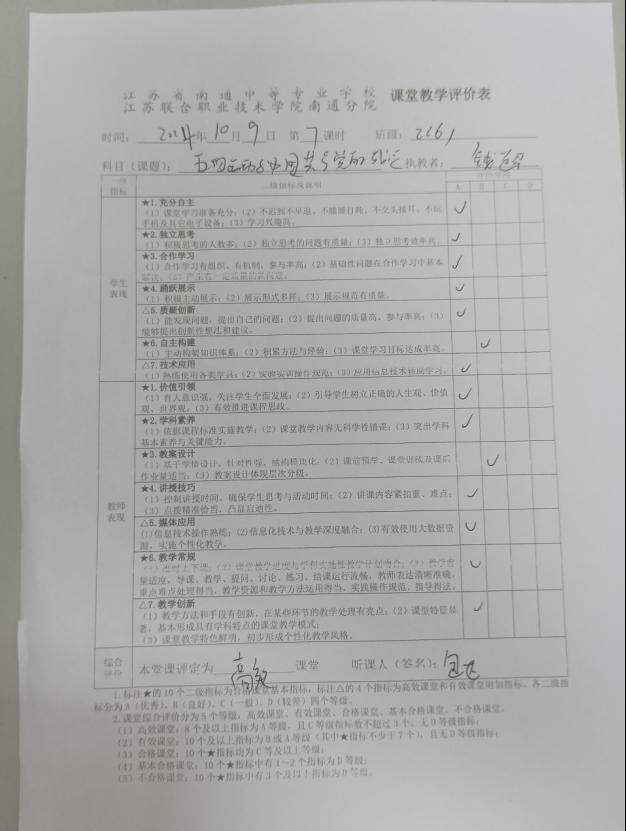 江苏省南通中等专业学校
江苏联合职业技术学院南通分院 课堂教学评价表
时间: 2024年10月9日 第7课时 班级: 2261
科目(课题): 五四运动与中国共产党的 执教者:
指标 二级指标及说明
A B C D
学生表现
★1.充分自主 ✓
(1)课堂学习准备充分;(2)不迟到不早退、不瞌睡打盹、不交头接耳、不玩
手机及其它电子设备;(3)学习兴趣高。
★2.独立思考 ✓
(1)积极思考的人数多;(2)独立思考的问题有质量;(3)独立思考效率高。
★3.合作学习 ✓
(1)合作学习有组织、有机制、参与率高;(2)基础性问题在合作学习中基本
解决;(3)产生有一定质量的新问题。
★4.踊跃展示 ✓
(1)积极主动展示;(2)展示形式多样;(3)展示规范有质量。
△5.质疑创新 ✓
(1)能发现问题,提出自己的问题;(2)提出问题的质量高、参与率高;(3)
能够提出创新性想法和建议。
★6.自主构建 ✓
(1)主动构架知识体系;(2)积累方法与经验;(3)课堂学习目标达成率高。
△7.技术应用 ✓
(1)熟练使用各类学具;(2)实验实训操作规范;(3)应用信息技术辅助学习。
教师表现
★1.价值引领 ✓
(1)育人意识强,关注学生全面发展;(2)引导学生树立正确的人生观、价值
观、世界观;(3)有效推进课程思政。
★2.学科素养 ✓
(1)依据课程标准实施教学;(2)课堂教学内容无科学性错误;(3)突出学科
基本素养与关键能力。
★3.教案设计 ✓
(1)基于学情设计、针对性强、结构模块化;(2)课前预学、课堂训练及课后
作业量适当;(3)教案设计体现层次分级。
★4.讲授技巧 ✓
(1)控制讲授时间,确保学生思考与活动时间;(2)讲课内容紧扣重、难点;
(3)点拨精准恰当,凸显启迪性。
△5.媒体应用 ✓
(1)信息技术操作熟练;(2)信息化技术与教学深度融合;(3)有效使用大数据资
源,实施个性化教学。
★6.教学常规 ✓
(1)准时上下课;(2)课堂教学进度与学科实施性教学计划吻合;(3)教学容
量适度,导课、教学、提问、讨论、练习、结课运行流畅,教师表达清晰准确,
重点难点处理得当,教学资源和教学方法运用得当,实践操作规范,指导得法。
△7.教学创新 ✓
(1)教学方法和手段有创新,在某些环节的教学处理有亮点;(2)课型特征显
著,基本形成具有学科特点的课堂教学模式;
(3)课堂教学特色鲜明,初步形成个性化教学风格。
综合评价 本堂课评定为 高效 课堂 听课人(签名):
1.标注★的10个二级指标为合格课堂基本指标,标注△的4个指标为高效课堂和有效课堂附加指标。各二级指
标分为A(优秀)、B(良好)、C(一般)、D(较差)四个等级。
2.课堂综合评价分为5个等级:高效课堂、有效课堂、合格课堂、基本合格课堂、不合格课堂。
(1)高效课堂:8个及以上指标为A等级,且C等级指标数不超过3个、无D等级指标;
(2)有效课堂:10个及以上指标为B或A等级(其中★指标不少于7个),且无D等级指标;
(3)合格课堂:10个★指标均为C等及以上等级;
(4)基本合格课堂:10个★指标中有1~2个指标为D等级;
(5)不合格课堂:10个★指标中有3个及以上指标为D等级。